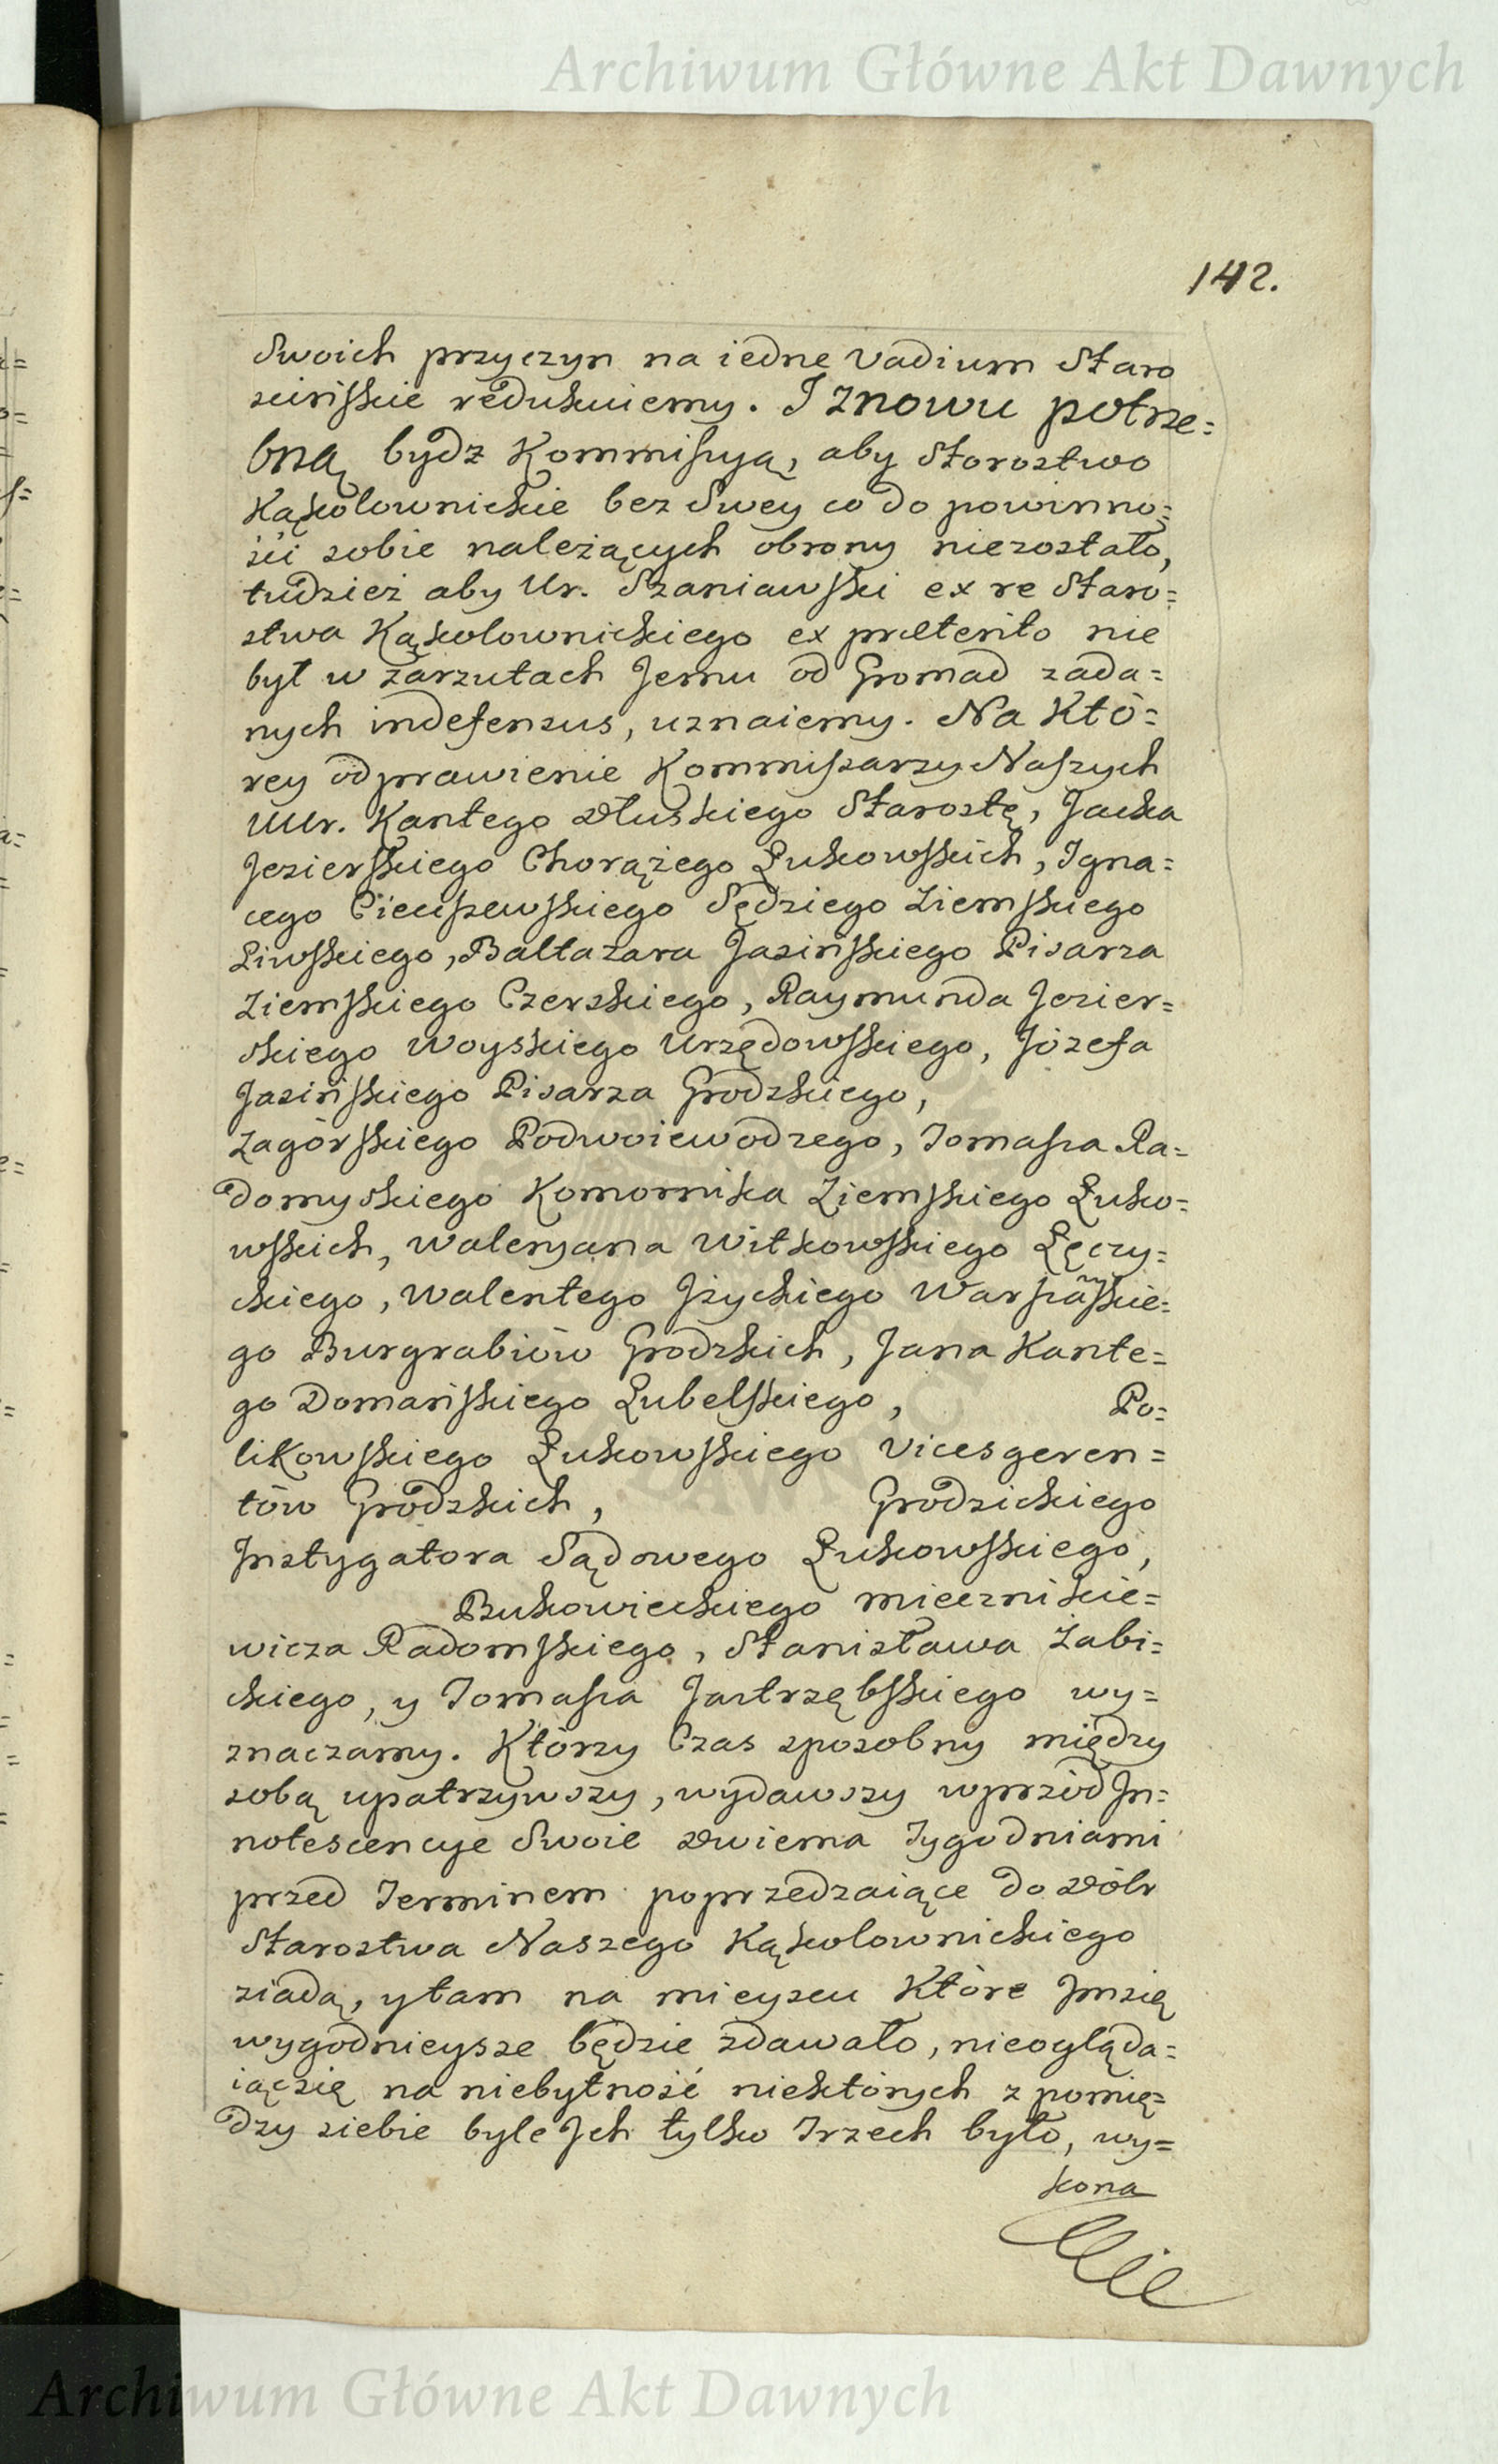 Archiwum Główne Akt Dawnych
142.
Swoich przyczyn na iedne Vadium Staro
scińskie redukuiemy. I znowu potrze=
bną bydz Kommissyą, aby Starostwo
Kąkolownickie bez Swey co do powinno=
sci sobie należących obrony niezostało,
tudzież aby Ur. Szaniawski ex re Staro=
stwa Kąkolownickiego ex præterito nie
był w zarzutach Jemu od Gromad zada=
nych indefensus, uznaiemy. Na Któ=
rey odprawienie Kommissarzy Naszych
UUr. Kantego Dłuskiego Starostę, Jacka
Jezierskiego Chorążego Łukowskich, Igna=
cego Cieciszewskiego Sędziego Ziemskiego
Liwskiego, Baltazara Jasińskiego Pisarza
Ziemskiego Czerskiego, Raymunda Jezier=
skiego Woyskiego Urzędowskiego, Józefa
Jasińskiego Pisarza Grodzkiego,
Zagórskiego Podwoiewodzego, Tomasza Ra=
domyskiego Komornika Ziemskiego Łuko=
wskich, Waleryana Witkowskiego Łęczy=
ckiego, Walentego Jżyckiego Warszawskie=
go Burgrabiów Grodzkich, Jana Kante=
go Domańskiego Lubelskiego, Po=
likowskiego Łukowskiego Vicesgeren=
tów Grodzkich, Grodzickiego
Instygatora Sądowego Łukowskiego,
Bukowieckiego miecznikie=
wicza Radomskiego, Stanisława Żabi=
ckiego, y Tomasza Jastrzębskiego wy=
znaczamy. Którzy Czas sposobny między
sobą upatrzywszy, wydawszy wprzód In=
notescencye Swoie dwiema Tygodniami
przed Terminem poprzedzaiące do Dóbr
Starostwa Naszego Kąkolownickiego
ziadą, ytam na mieyscu Które Jmsię
wygodnieysze będzie zdawało, nieogląda=
iącsię na niebytność niektórych z pomię=
dzy siebie byle Jch tylko Trzech było, wy=
kona
Archiwum Główne Akt Dawnych